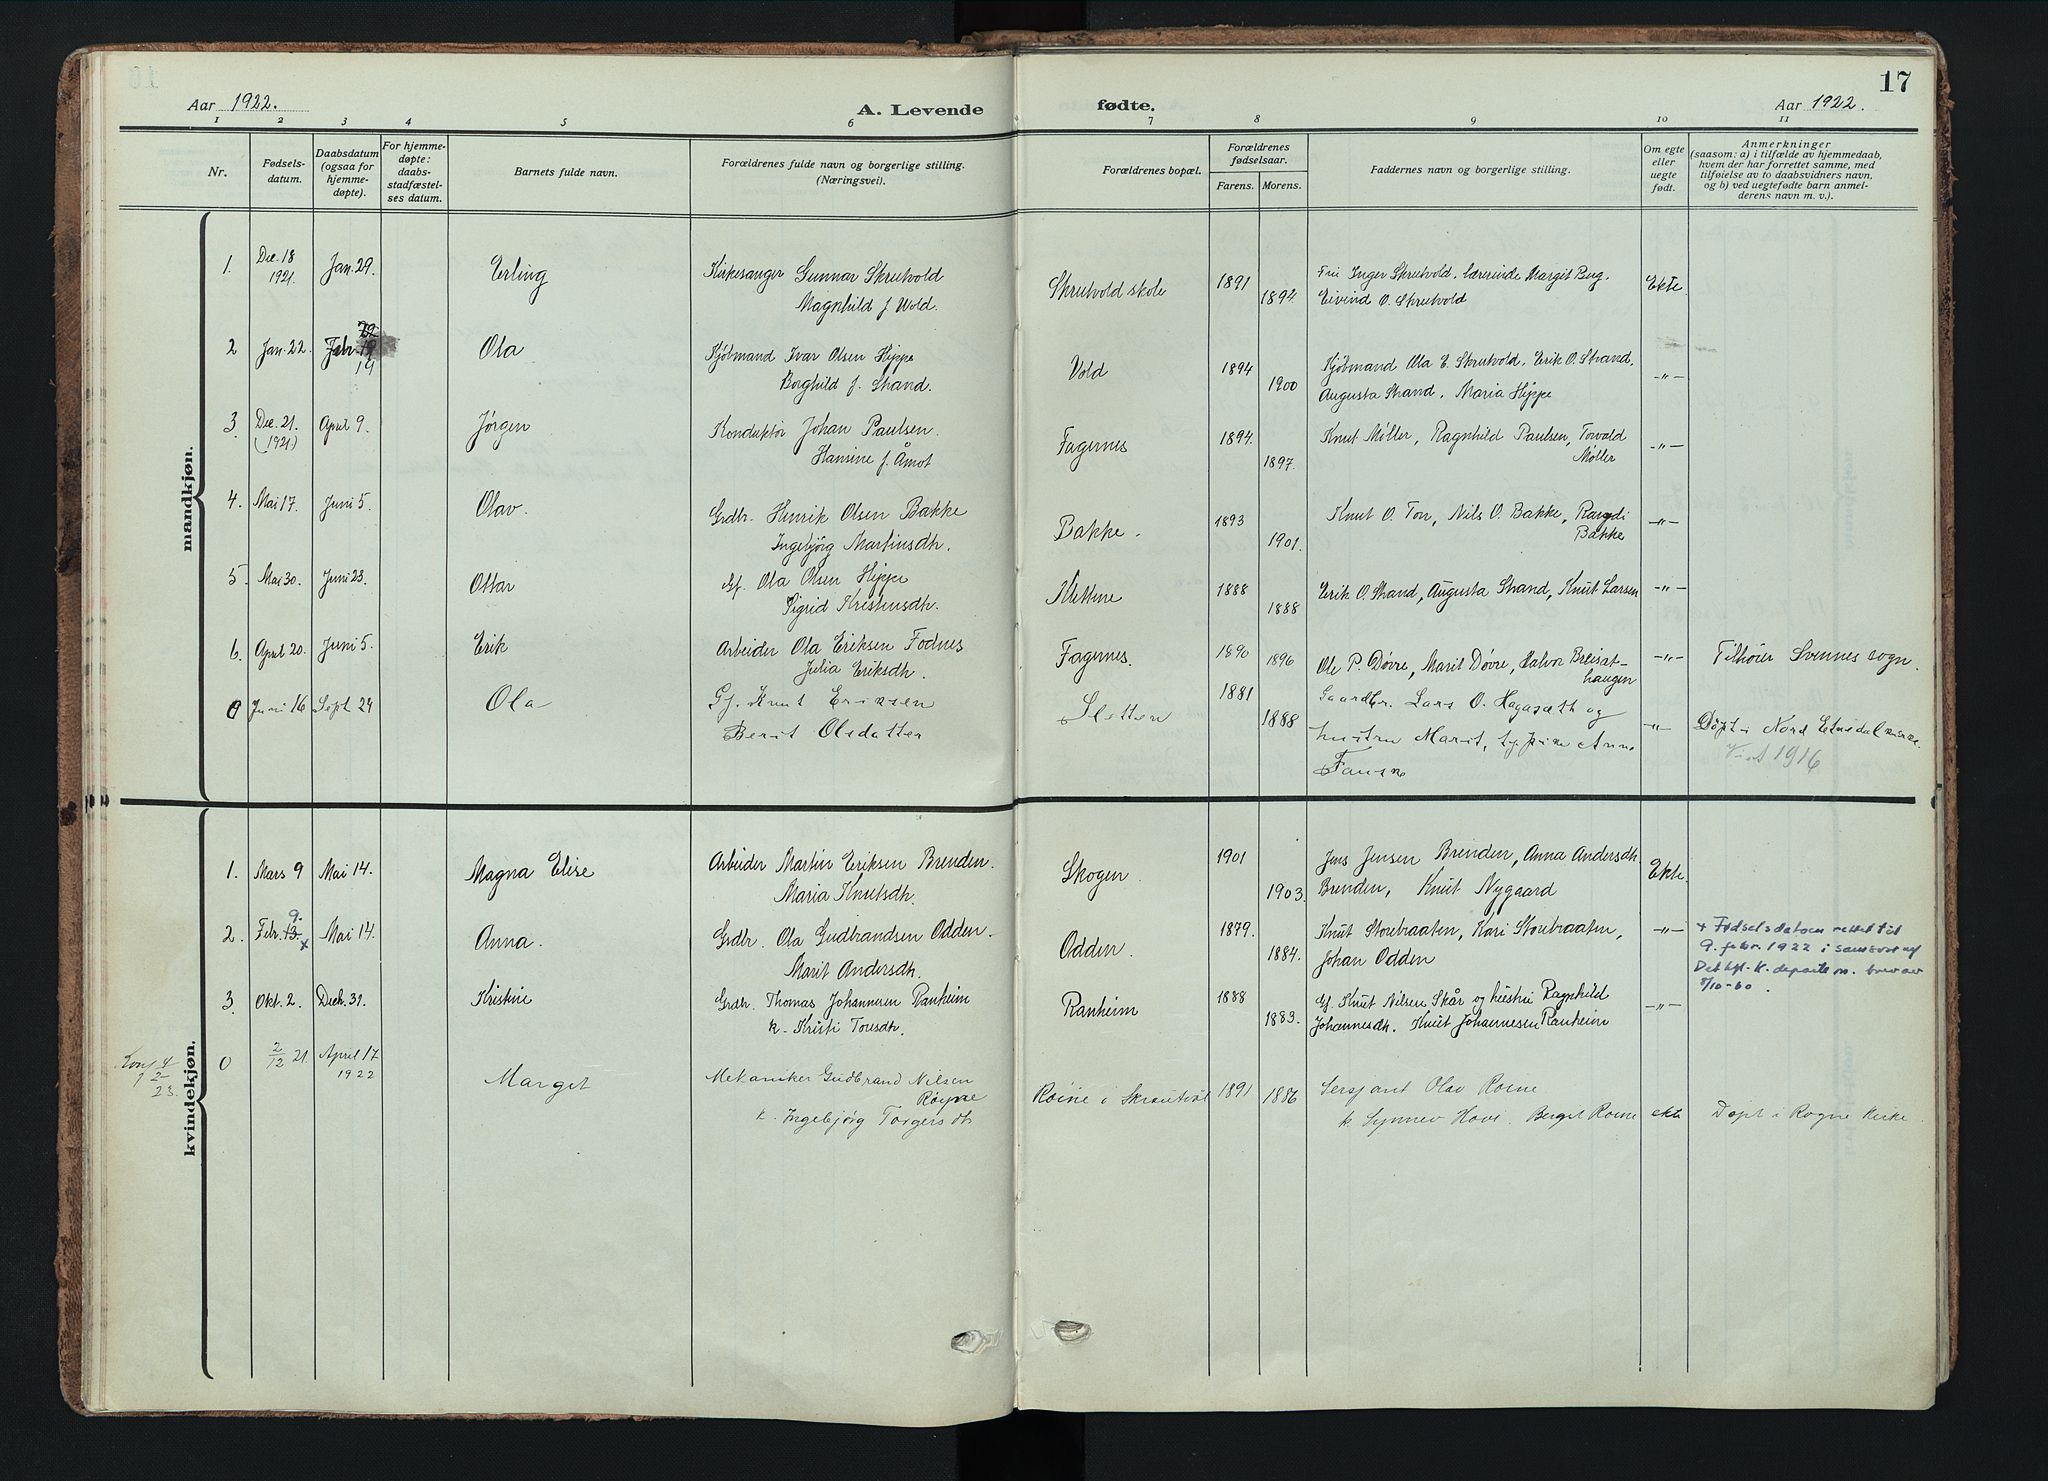 17
Aar 1922.
A. Levende
fødte.
Aar 1922.
1 2 3 4 5 6 7 8 9 10 11
Nr.
Fødsels-
datum.
Daabsdatum
(ogsaa for
hjemme-
døpte).
For hjemme-
døpte:
daabs-
stadfæstel-
ses datum.
Barnets fulde navn.
Forældrenes fulde navn og borgerlige stilling.
(Næringsvei).
Forældrenes bopæl.
Forældrenes
fødselsaar.
Farens. Morens.
Faddernes navn og borgerlige stilling.
Om egte
eller
uegte
født.
Anmerkninger
(saasom: a) i tilfælde av hjemmedaab,
hvem der har forrettet samme, med
tilføielse av to daabsvidners navn,
og b) ved uegtefødte barn anmel-
derens navn m. v.).
mandkjøn.
1. Dec. 18 Jan. 29. Erling Kirkesanger Gunnar Skrutvold Skrutvold skole 1891 Inger Skrutvold, lærerinde Margit Berg. Ekte
1921. Magnhild f. Wold. 1894. Eivind O. Skrutvold
2 Jan. 22. Febr. 19 Ola Kjøbmand Ivar Olsen Hippe Vold 1894 Kjøbmand Ola E. Skrutvold, Erik O. Strand, -"-
19 Borghild f. Strand. 1900 Augusta Strand, Maria Hippe
3. Dec. 21. April 9. Jørgen Konduktør Johan Paulsen. Fagernes 1894. Knut Møller, Ragnhild Paulsen, Torvald -"-
(1921) Hansine f. Åmot 1897. Møller
4. Mai 17. Juni 5. Olav. Grdbr. Henrik Olsen Bakke Bakke. 1893 Knut O. Ton, Nils O. Bakke, Randi -"-
Ingebjørg Martinsdh. 1901. Bakke
5. Mai 30. Juni 23. Ottar Gf. Ola Olsen Hippe Klettene 1888 Erik O. Strand, Augusta Strand, Knut Larsen -"-
Sigrid Kristensdh. 1888
6. April 20. Juni 5. Erik Arbeider Ola Eriksen Fodnes Fagernes. 1890 1896 Ole P. Døvre, Marit Døvre, Halvor Breisat- -"- Tilhører Svennes sogn.
Julia Eriksdh. haugen
0 Juni 16 Sept 24 Ola Gf. Knut Eriksen Sletten 1881 Gaardbr. Lars O. Hagasæth og
Berit Olsdatter 1888 hustru Marit, Anne -"- Døpt i Nord Etnedal
1916
kvindekjøn.
1. Mars 9 Mai 14. Magna Elise Arbeider Martin Eriksen Brenden. Skogen. 1901 Jens Jensen Brenden, Anna Andersdh. Ekte.
Maria Knutsdh. 1903. Brenden, Knut Nygaard
9.
2. Febr. 13. x Mai 14. Anna. Grdbr. Ola Gudbrandsen Odden. Odden. 1879. Knut Storbraaten, Kari Storbraaten, -"- + Fødselsdatoen rettet til
Marit Andersdh. 1884. Johan Odden 9. febr. 1922 i samsvar m/
Det kgl. K. departem. brev av
8/10-60.
3. Okt. 2. Decb. 31. Kristine Grdbr. Thomas Johannesen Ranheim Ranheim 1888 Gf. Knut Nilsen Skår og hustru Ragnhild -"-
k. Kristi Tousdh. 1883. Johannesdh. Knut Johannesen Ranheim
Konf 4
1 2
23.
0 2/12 21. April 17 Marget Mekaniker Gudbrand Nilsen Røine i Skrautvål 1891 1886 Sersjant Olav Roine
1922 Røyne
k. Ingebjørg Torgersdh k. Synnev Hovi, Berget Roine ekte Døpt i Rogne kirke.